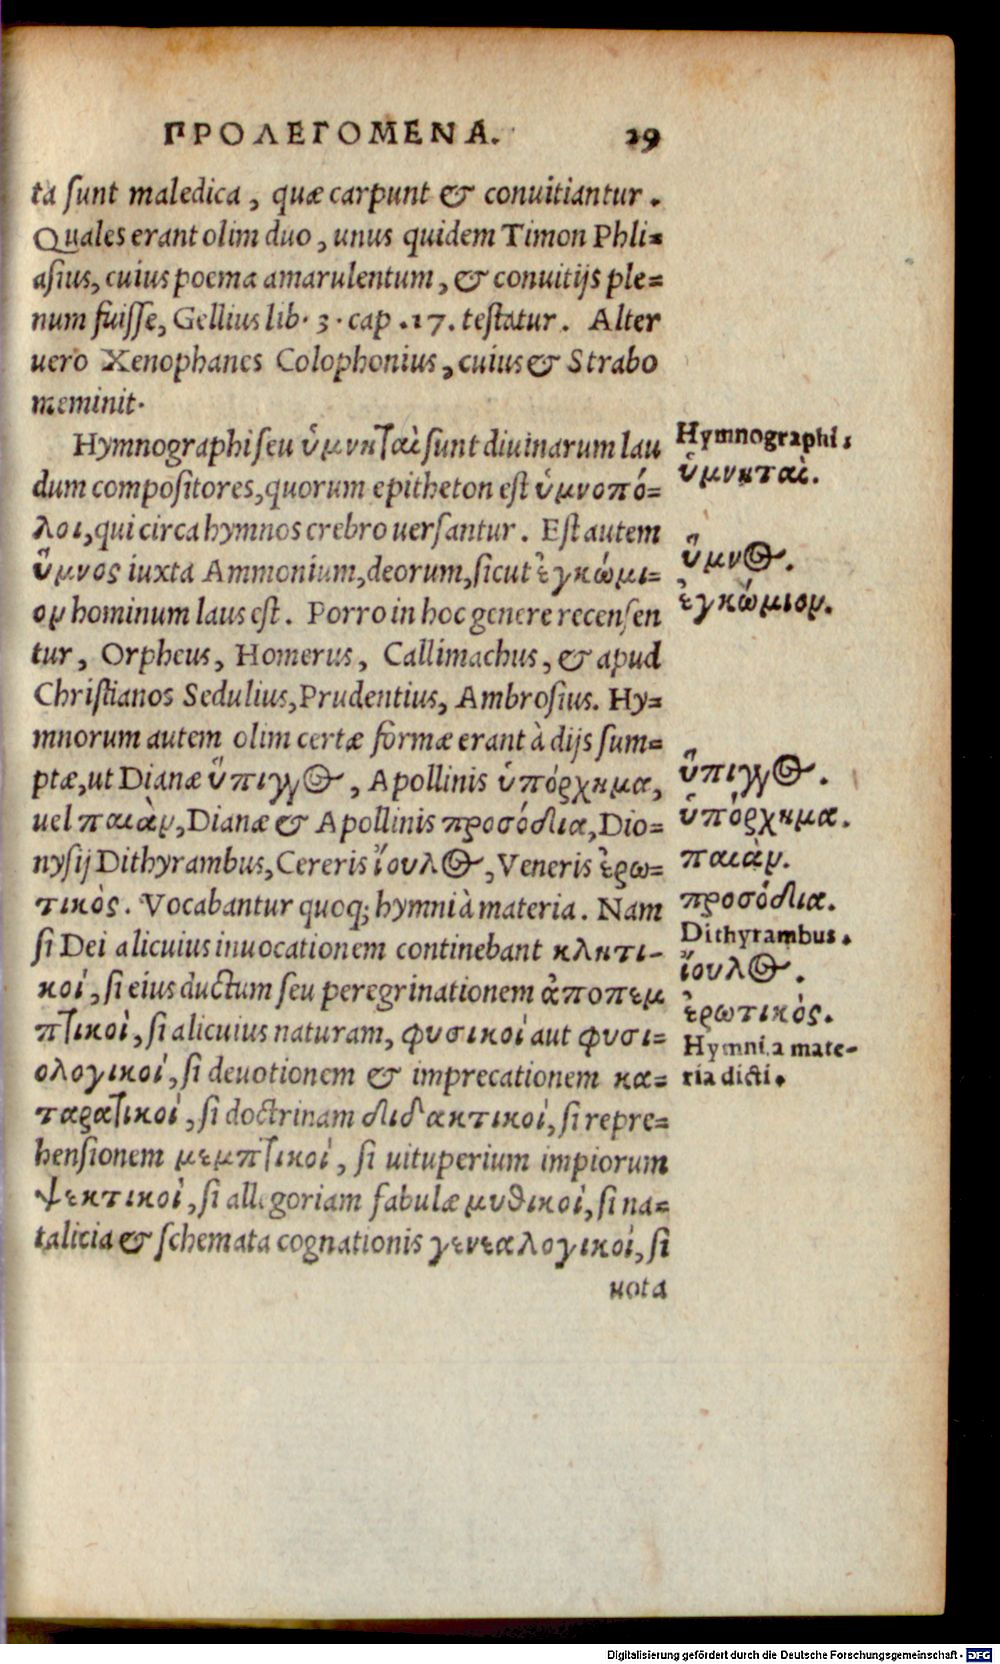 ΠΡΟΛΕΓΟΜΕΝΑ. 29
ta ſunt maledica, quæ carpunt & conuitiantur.
Quales erant olim duo, unus quidem Timon Phli-
aſius, cuius poema amarulentum, & conuitijs ple-
num fuiſſe, Gellius lib. 3. cap. 17. teſtatur. Alter
uero Xenophanes Colophonius, cuius & Strabo
meminit.
Hymnographi ſeu ὑμνηταὶ ſunt diuinarum lau
dum compoſitores, quorum epitheton eſt ὑμνοπό-
λοι, qui circa hymnos crebro uerſantur. Eſt autem
ὕμνος iuxta Ammonium, deorum, ſicut ἐγκώμι-
ον hominum laus eſt. Porro in hoc genere recenſen
tur, Orpheus, Homerus, Callimachus, & apud
Chriſtianos Sedulius, Prudentius, Ambroſius. Hy-
mnorum autem olim certæ formæ erant à dijs ſum-
ptæ, ut Dianæ ὕπιγγος, Apollinis ὑπόρχημα,
uel παιὰν, Dianæ & Apollinis προσόδια, Dio-
nyſij Dithyrambus, Cereris ἴουλος, Veneris ἐρω-
τικὸς. Vocabantur quoq; hymni à materia. Nam
ſi Dei alicuius inuocationem continebant κλητι-
κοί, ſi eius ductum ſeu peregrinationem ἀποπεμ
πτικοὶ, ſi alicuius naturam, φυσικοί aut φυσι-
ολογικοί, ſi deuotionem & imprecationem κα-
ταρατικοί, ſi doctrinam διδακτικοί, ſi repre-
henſionem μεμπτικοί, ſi uituperium impiorum
ψεκτικοί, ſi allegoriam fabulæ μυθικοί, ſi na-
talicia & ſchemata cognationis γενεαλογικοί, ſi
nota
Hymnographi.
ὑμνηταὶ.
ὕμνος.
ἐγκώμιον.
ὕπιγγος.
ὑπόρχημα.
παιὰν.
προσόδια.
Dithyrambus.
ἴουλος.
ἐρωτικὸς.
Hymni a mate-
ria dicti.
Digitalisierung gefördert durch die Deutsche Forschungsgemeinschaft - DFG